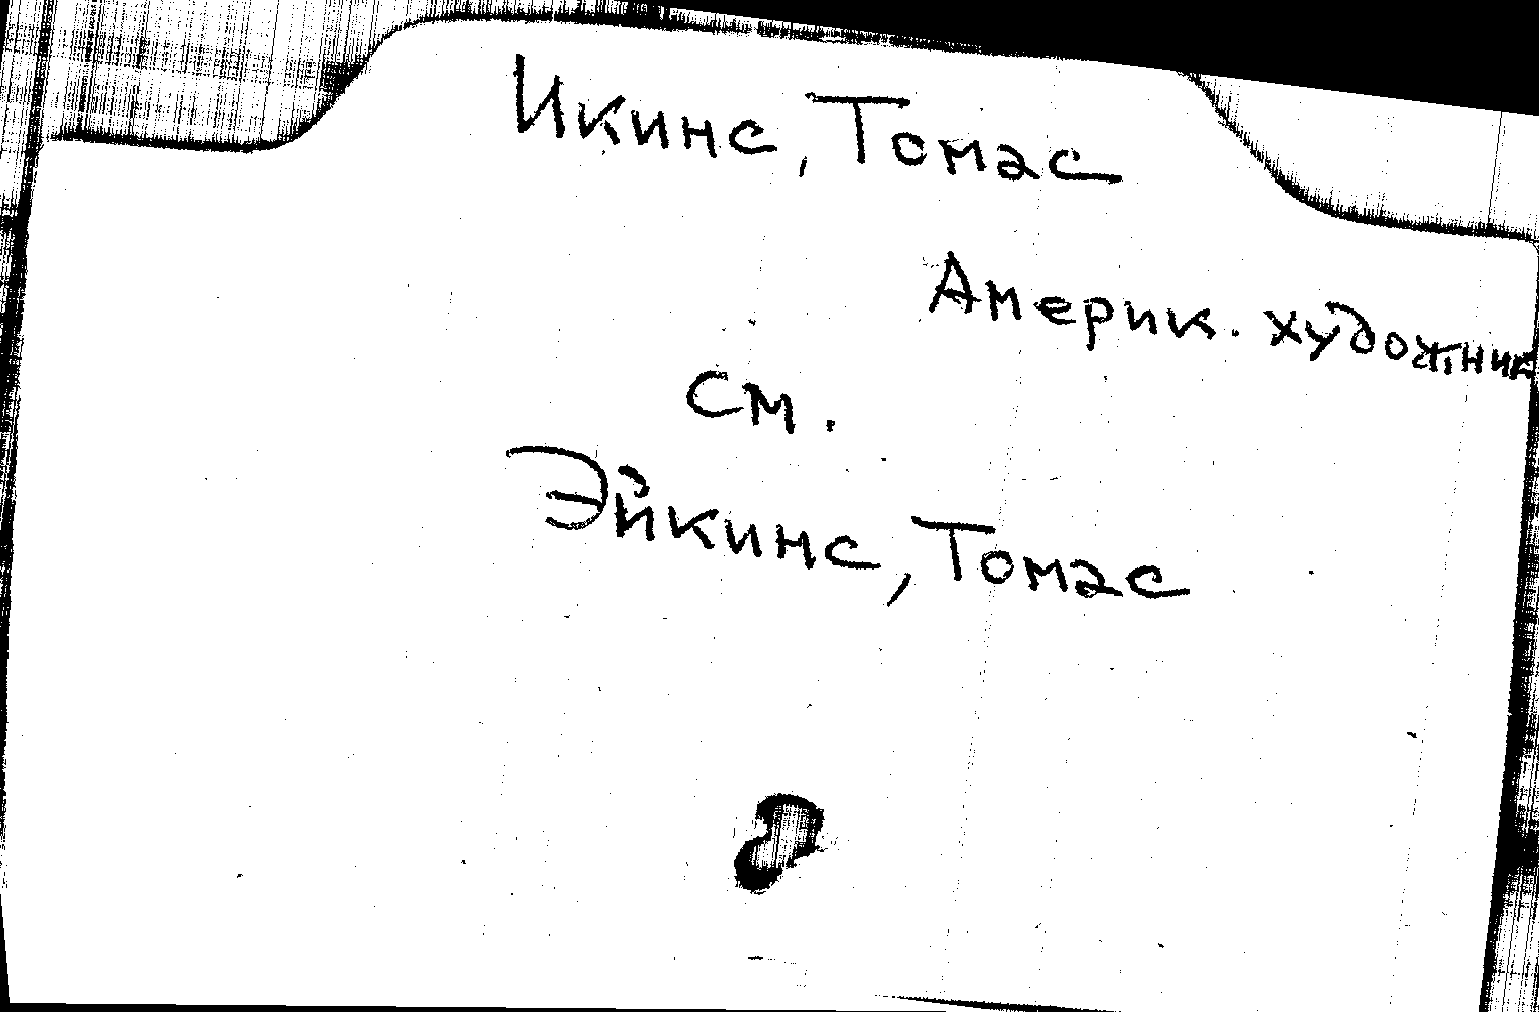 Икинс, Томас
Америк. художник
см.
Эйкинс, Томас